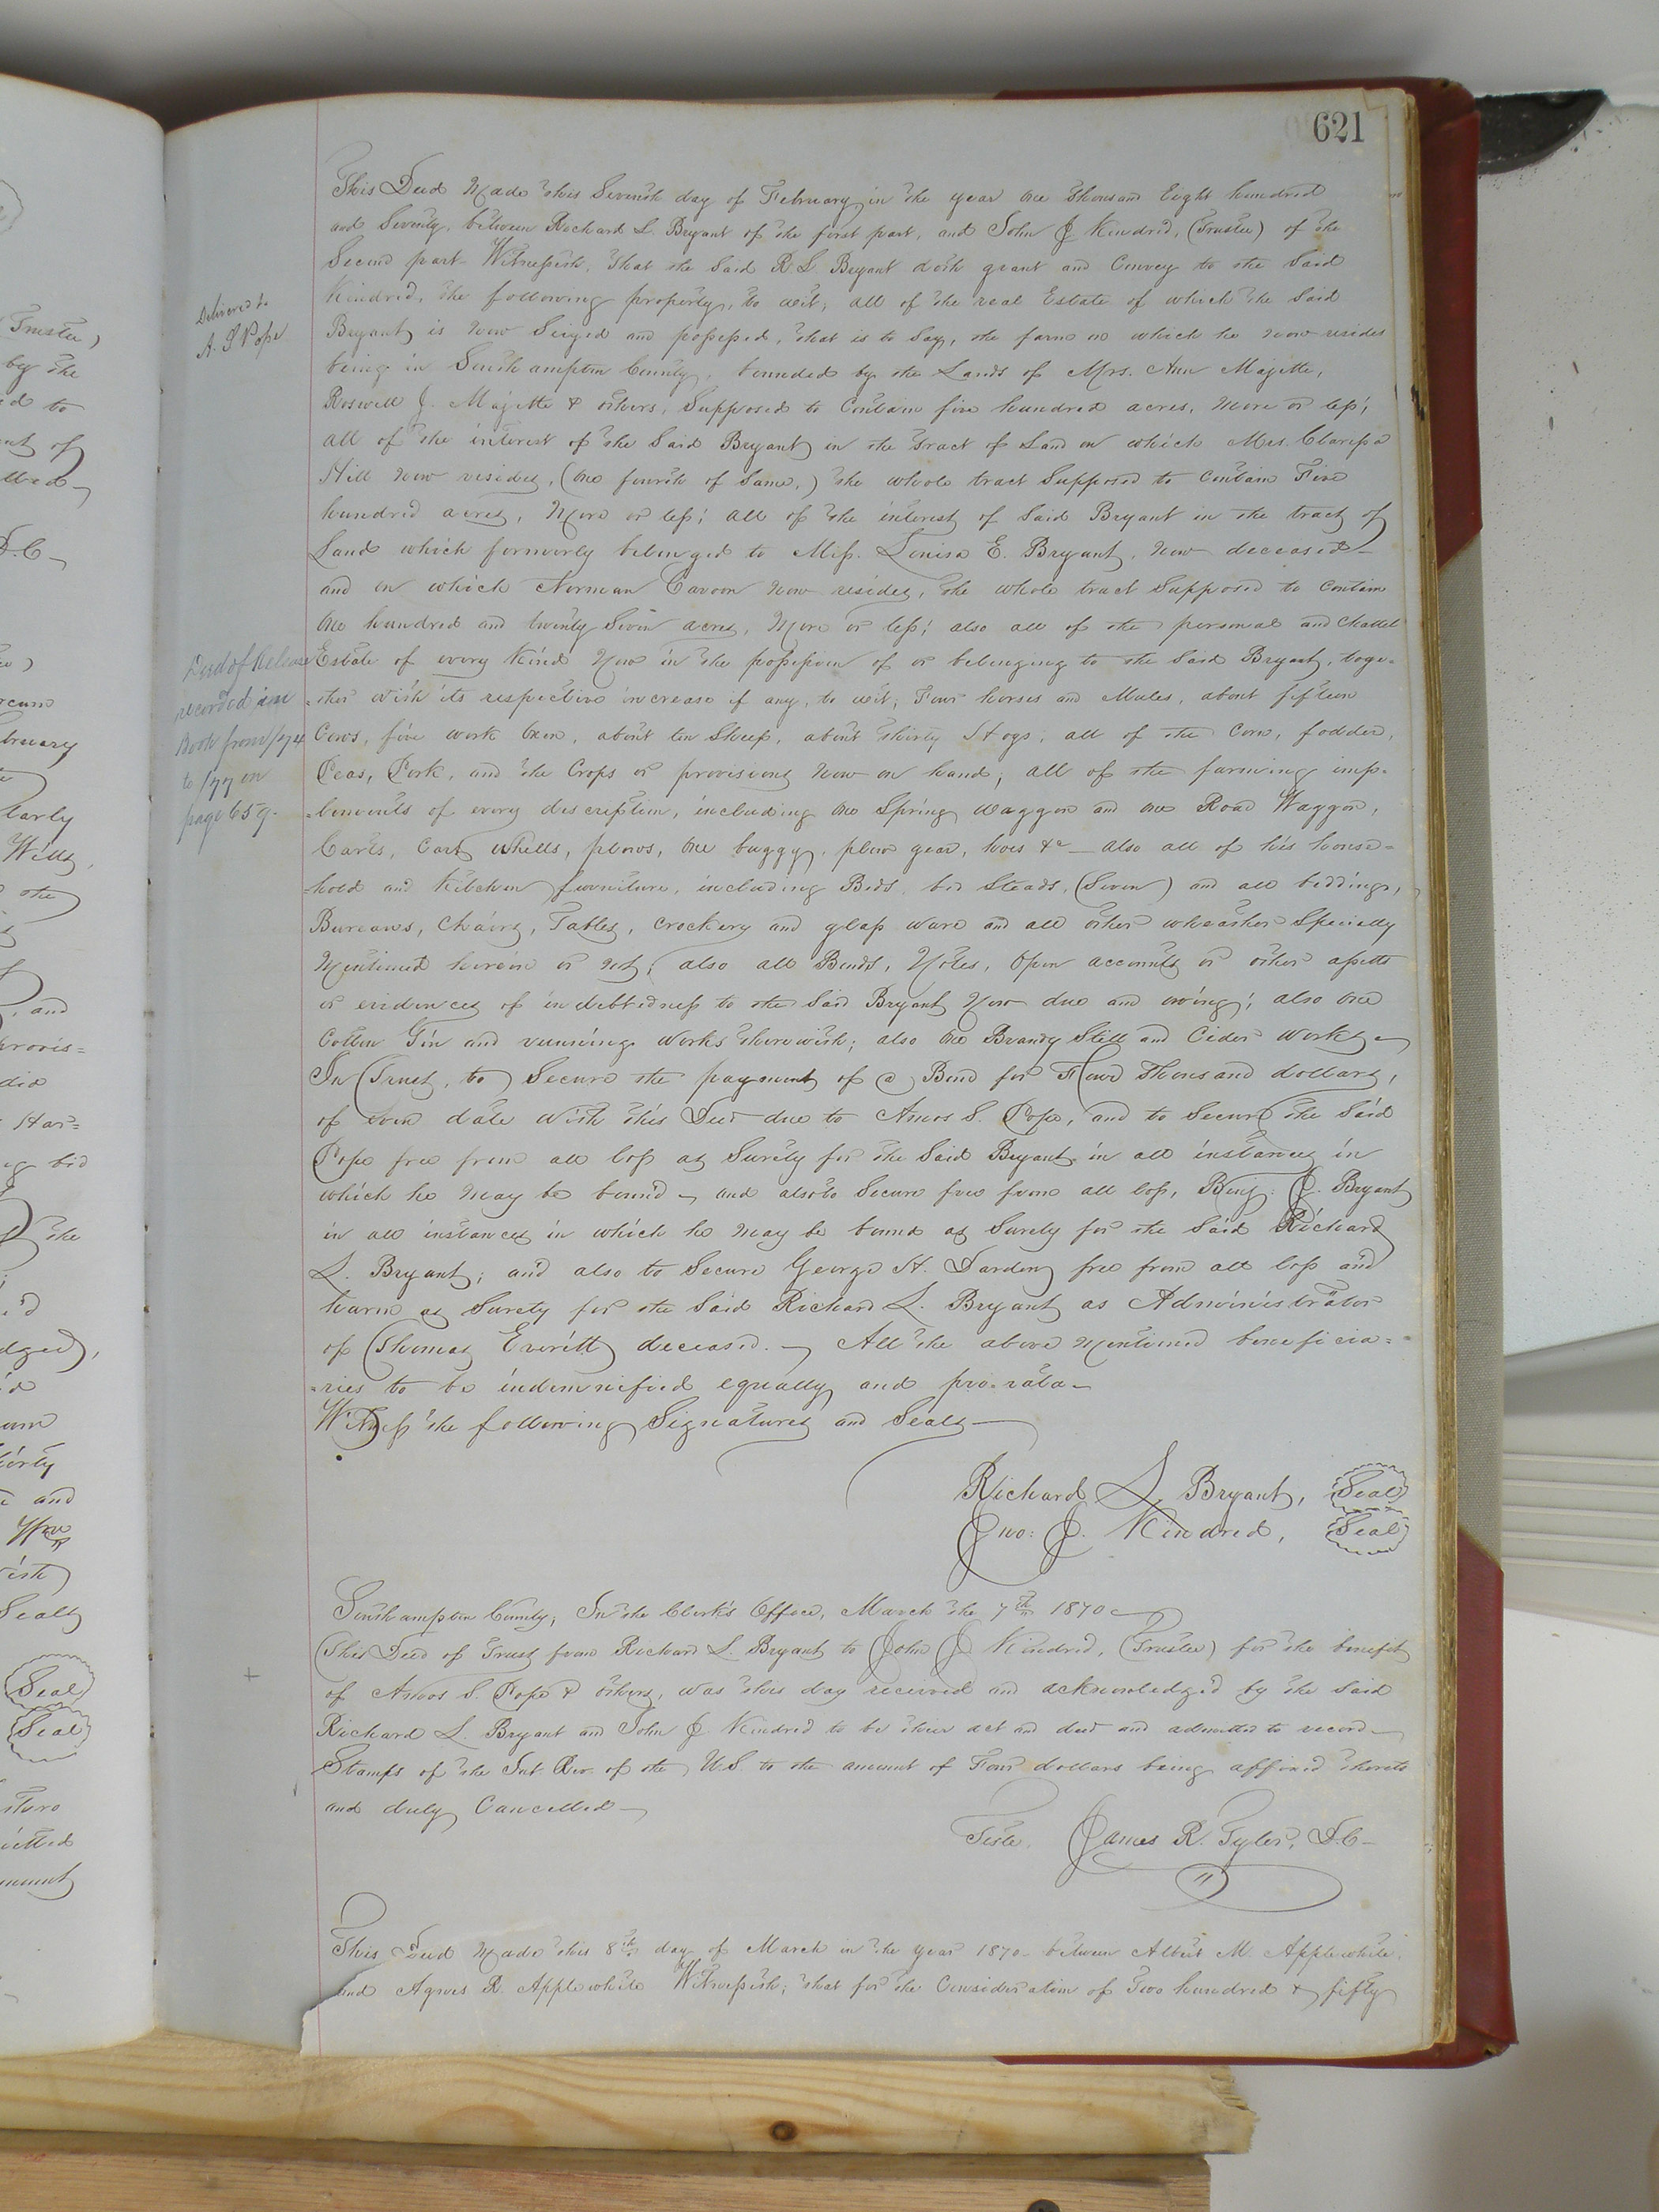 621
This Deed Made this Seventh day of February in the year one Thousand Eight hundred
and Seventy, between Richard L. Bryant of the first part, and John J Kindred, (Trustee) of the
Second part Witnesseth, That the Said R. L. Bryant doth grant and Convey to the Said
Kindred, the following property, to wit; all of the real Estate of which the Said
Bryant is now Seized and possessed, that is to Say, the farm on which he now resides
being in Southampton County, bounded by the Lands of Mrs. Ann Majette,
Roswell J. Majette & others, Supposed to Contain five hundred acres, more or less;
all of the interest of the Said Bryant in the tract of Land on which Mrs. Clarissa
Hill now resides, (one fourth of Same,) the whole tract Supposed to Contain Five
hundred acres, More or less; all of the interest of Said Bryant in the tract of
Land which formerly belonged to Miss. Louisa E. Bryant, now deceased
and on which Norman now resides, the whole tract Supposed to Contain
One hundred and twenty Seven acres, More or less; also all of the personal and Chattel
Estate of every Kind Now in the possession of or belonging to the Said Bryant, toge-
-ther with its respective increase if any, to wit; Four horses and Mules, about fifteen
Cows, five work Oxen, about ten Sheep, about thirty Hogs, all of the Corn, fodder,
Peas, Pork, and the Crops or provisions Now on hand; all of the farming imp-
-lements of every description, including One Spring Waggon and one Road Waggon,
Carts, Cart Whells, plows, One buggy, plow gear, hoes &c also all of his house-
-hold and Kitchen furniture, including Beds, bed Steads, (Seven) and all beddings,
Bureaus, Chairs, Tables, Crockery and glass ware and all other wheather Specially
Mentioned herein or not; also all Bonds, Notes, Open accounts or other assetts
or evidences of indebtedness to the Said Bryant Now due and owing; also One
Cotton Gin and running works therewith; also One Brandy Still and Cider works
In Trust, to Secure the payment of a Bond for Four Thousand dollars,
of even date with this Deed due to Amos S. Pope, and to Secure the Said
Pope free from all loss as Surety for the Said Bryant in all instances in
which he May be bound and also to Secure free from all loss, Benj. J. Bryant
in all instances in which he May be bound as Surety for the Said Richard
L. Bryant; and also to Secure George H. Darden free from all loss and
harm as Surety for the Said Richard L. Bryant as Administrator
of Thomas Everitt deceased. All the above Mentioned beneficia-
-ries to be indemnified equally and pro-rata
Witness the following Signatures and Seals
Richard L. Bryant, Seal
Jno: J. Kindred, Seal
Southampton County; In the Clerk's Office, March the 7th 1870
This Deed of Trust from Richard L. Bryant to John J Kindred, (Trustee) for the benefit
of Amos S. Pope & others, was this day received and acknowledged by the Said
Richard L. Bryant and John J. Kindred to be their act and deed and admitted to record
Stamps of the Int Rev. of the U.S. to the amount of Four dollars being affixed thereto
and duly Cancelled
Teste. James R. Tyler, D.C.
This Deed Made this 8th day of March in the year 1870 between Albert M. Applewhite
and Agnes R. Applewhite Witnesseth; that for the Consideration of Two hundred & fifty
Delivered to
A. S Pope
Deed of Release
recorded in
Book from 1874
to 1877 on
page 659.
Trustee)
by the
ed to
ent of
D.C
bruary
larly
Wills,
the
and
provis=
did
Har=
the
dged,
and
Seals
Seal
Seal